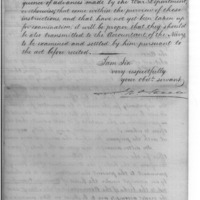 quence of advances made by the War Department
or having that come within the purview of these
instructions and that have not yet been taken up
for examination it will be proper that they should
be also transmitted to the Accountant of the Navy
to be examined and settled by him pursuant to
the act before recited.
I am Sir
very respectfully
your obt. servant,